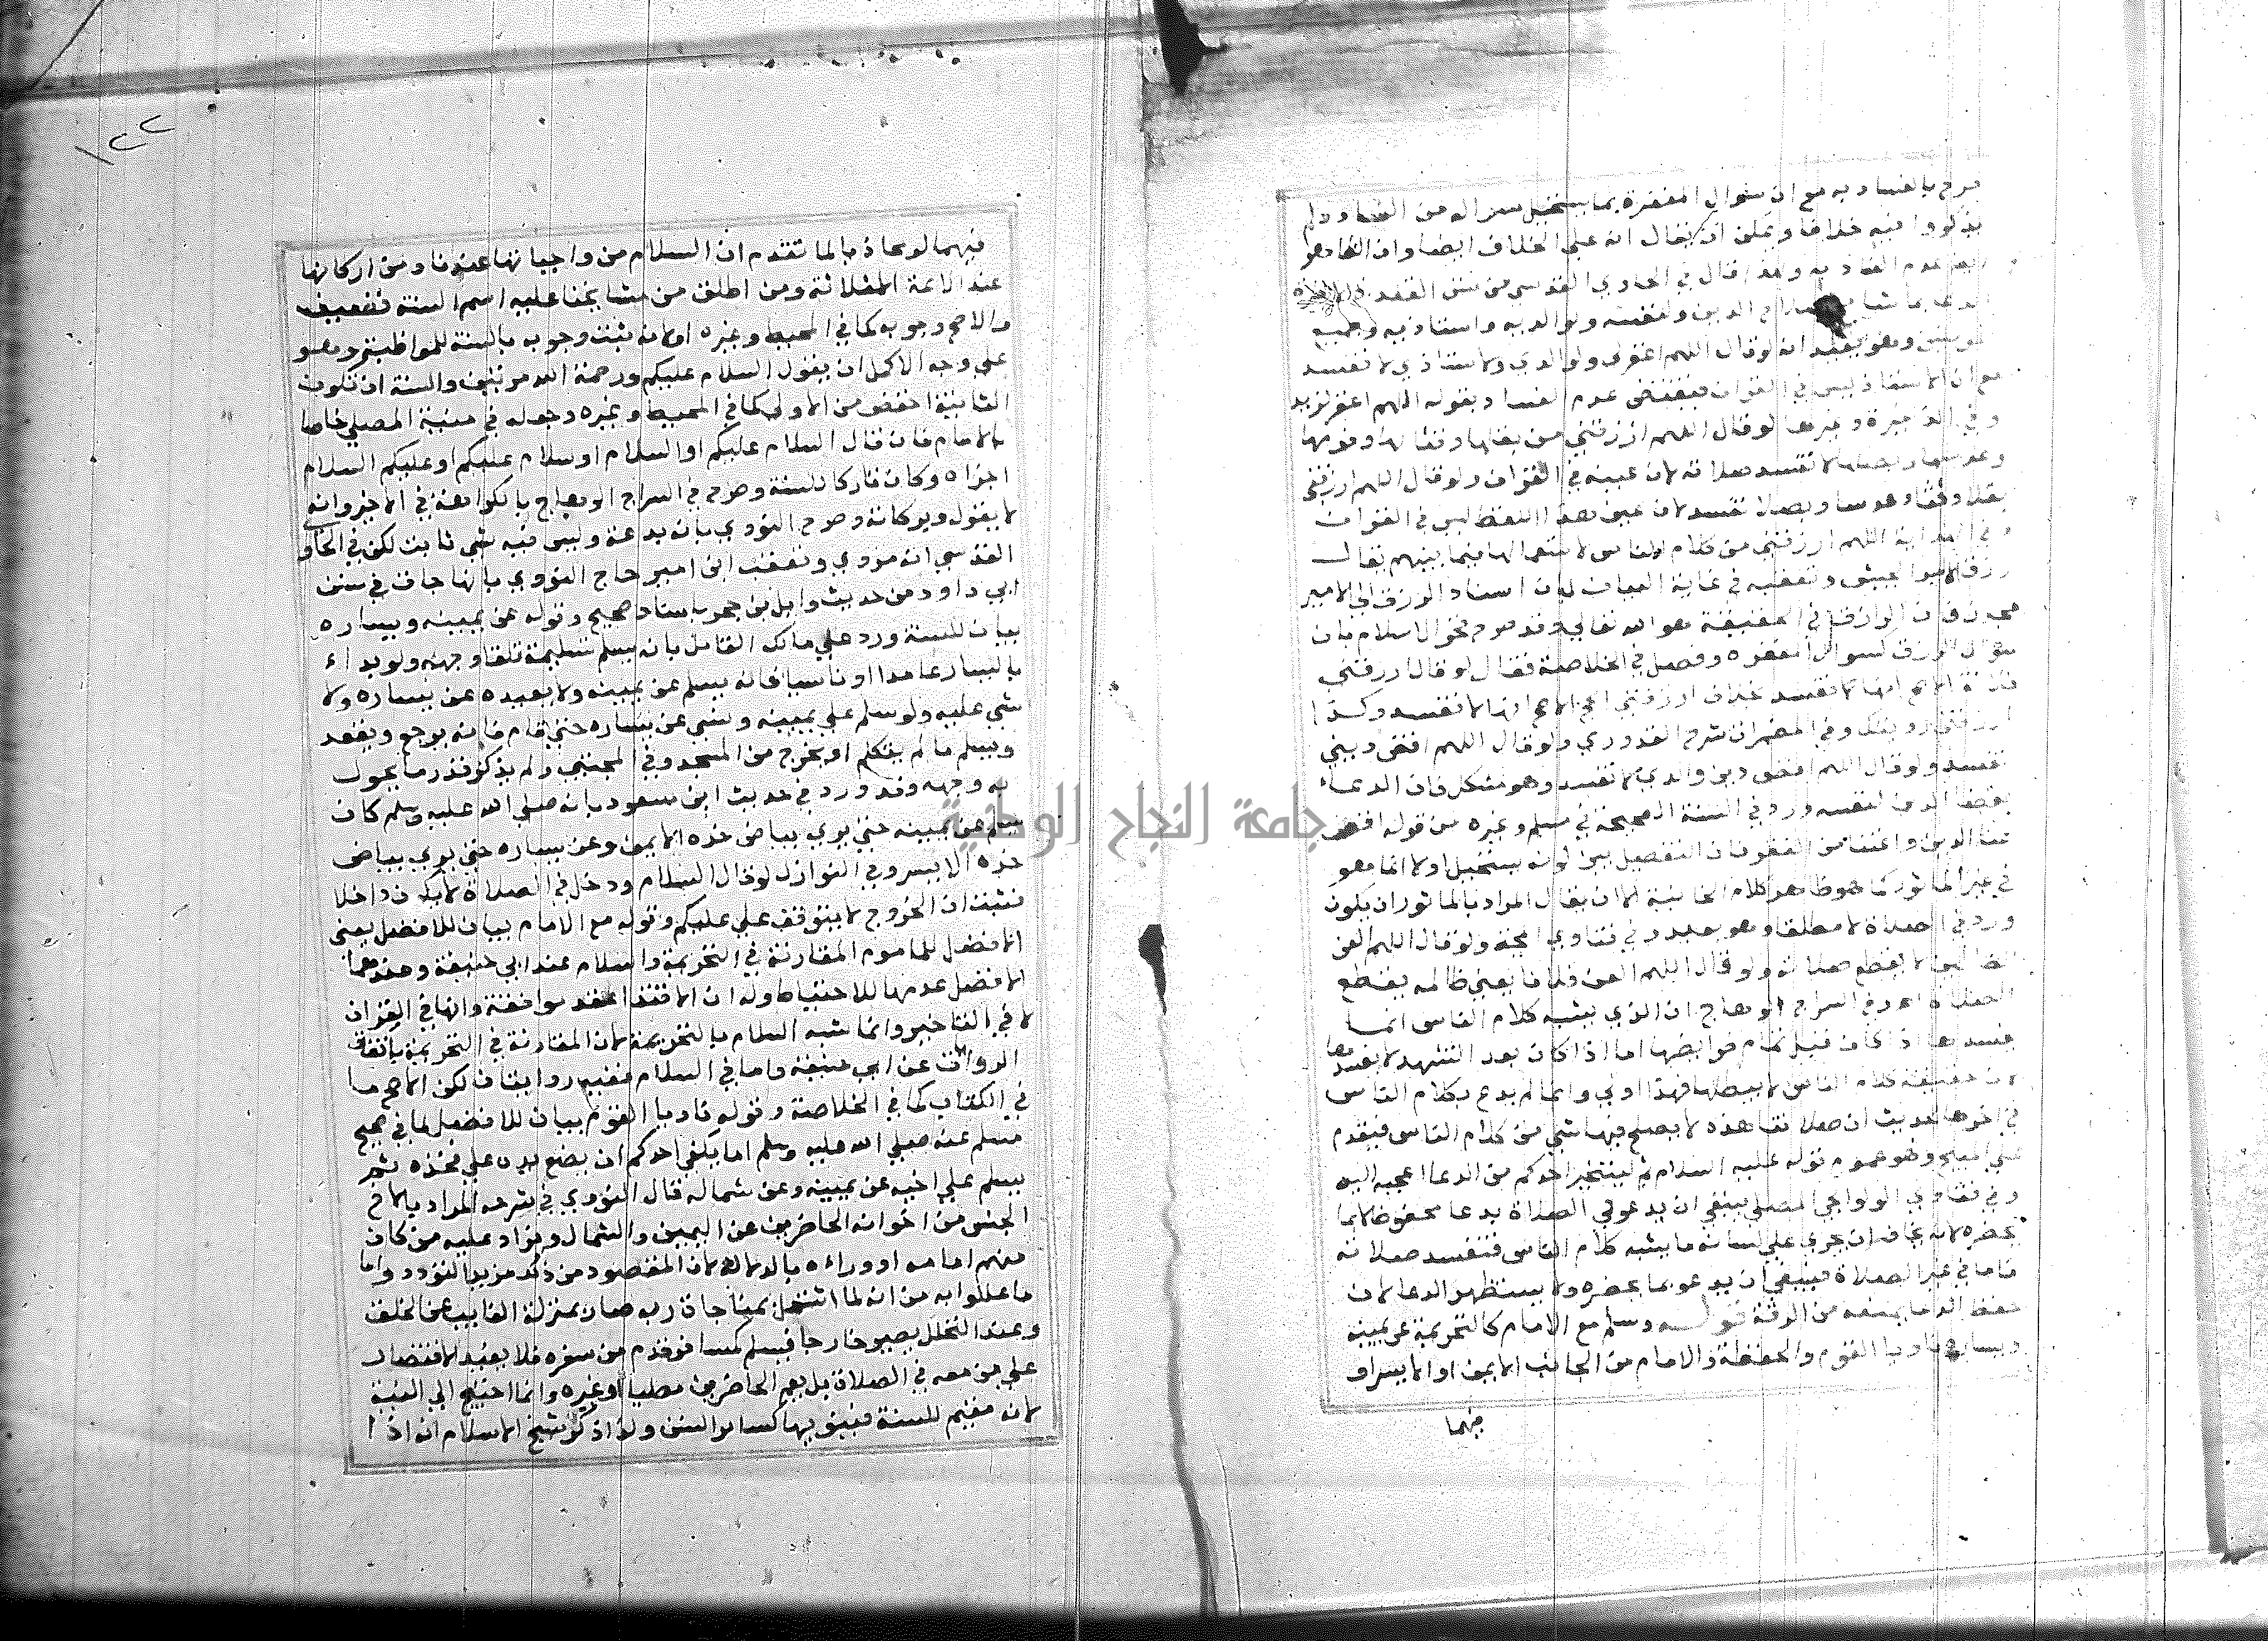 صرح بالفساد به مع ان سوال المغفرة بما يستحيل سواله من العباد ولم
يذكروا فيه خلافا ويمكن ان يقال انه على الخلاف ايضا وان الظاهر
عدم الفساد به ولهذا قال في الحاوي القدسي من سنن القعدة
الدعا بما شا من صلاح الدين ولنفسه ولوالديه واستاذيه وجميع
المومنين وهو يفيد انه لوقال اللهم اغفرلي ولوالدي ولاستاذي لا تفسد
مع ان الاستاذ ليس في القران فيقتضي عدم الفساد بقوله اللهم اغفر لزيد
وفي الذخيرة وغيرها لو قال اللهم ارزقني من بقلها وقثائها وفومها
وعدسها وبصلها لا تفسد صلاته لان عينه في القران ولو قال اللهم ارزقني
بقلا وقثا وعدسا وبصلا تفسد لان عين هذا اللفظ ليس في القران
وفي الهداية اللهم ارزقني من كلام الناس لاستعمالها فيما بينهم يقال
رزق الامير الجيش وتعقبه في غاية البيان لان اسناد الرزق الى الامير
مجاز فان الرازق في الحقيقة هو الله تعالى وقد صرح فخر الاسلام بان
سؤال الرزق كسوال المغفره وفصل في الخلاصة فقال لو قال ارزقني
فلانة الاصح انها تفسد بخلاف ارزقني الحج الاصح انها لا تفسد وكذا
ارزقني رويتك وفي المضمرات شرح القدوري ولو قال اللهم اقض ديني
تفسد ولو قال اللهم اقض دين والدي لا تفسد وهو مشكل فان الدعاء
بقضا الدين لنفسه ورد في السنة الصحيحة في مسلم وغيره من قوله اقض
عنا الدين واغننا من الفقر فان التفصيل بين كونه يستحيل اولا انما هو
في غير الماثور كما هو ظاهر كلام الخانية الا ان يقال المراد بالماثور ان يكون
ورد في الصلاة لا مطلقا وهو بعيد وفي فتاوي الحجة ولو قال اللهم العن
الظالمين لا يقطع صلاته ولو قال اللهم العن فلانا يعني ظالمه يقطع
الصلاة اهـ وفي السراج الوهاج ان الذي يشبه كلام الناس انما
يفسدها اذا كان قبل تمام فرايضها اما اذا كان بعد التشهد لا يفسدها
لان حقيقة كلام الناس لا يبطلها فهذا اولي وانما لم يدع بكلام الناس
في اخرها لحديث ان صلاتنا هذه لا يصلح فيها شي من كلام الناس فيقدم
على المبيح وهو عموم قوله عليه السلام ثم ليتخير احدكم من الدعا اعجبه اليه
وفي فتاوي الولوالجي المصلي ينبغي ان يدعو في الصلاة بدعا محفوظ لا بما
يحضره لانه يخاف ان يجري على لسانه ما يشبه كلام الناس فتفسد صلاته
فاما في غير الصلاة فينبغي ان يدعو بما يحضره ولا يستظهر الدعا لان
حفظ الدعا يمنعه من الرقة قوله وسلم مع الامام كالتحريمة عن يمينه
ويساره ناويا القوم والحفظة والامام من الجانب الايمن او الايسر او
فيهما
١٢٢
فيهما لو محاذيا لما تقدم ان السلام من واجباتها عندنا ومن اركانها
عند الائمة الثلاثة ومن اطلق من مشايخنا عليه اسم السنة فضعيف
والاصح وجوبه كما في المحيط وغيره او لانه ثبت وجوبه بالسنة للمواظبة وهو
على وجه الاكمل ان يقول السلام عليكم ورحمة الله مرتين والسنة ان تكون
الثانية اخفض من الاولى كما في المحيط وغيره وجعله في منية المصلي خاصا
بالامام فان قال السلام عليكم او السلام او سلام عليكم او عليكم السلام
اجزاه وكان تاركا للسنة وصرح في السراج الوهاج بالكراهة في الاخير وانه
لا يقول وبركاته وصرح النووي بانه بدعة وليس فيه شي ثابت لكن في الحاوي
القدسي انه مروي وتعقب ابن امير حاج النووي بانها جات في سنن
ابي داود من حديث وايل بن حجر باسناد صحيح وقوله عن يمينه ويساره
بيان للسنة ورد على مالك القائل بانه يسلم تسليمة تلقا وجهه ولو بداء
باليسار عامدا او ناسيا فانه يسلم عن يمينه ولا يعيده عن يساره ولا
شي عليه ولو سلم على يمينه ونسي عن يساره حتى قام فانه يرجع ويقعد
ويسلم ما لم يتكلم او يخرج من المسجد وفي المجتبي ولم يذكر قدر ما يحول
به وجهه وقد ورد في حديث ابن مسعود بانه صلى الله عليه وسلم كان
يسلم عن يمينه حتى يري بياض خده الايمن وعن يساره حتى يري بياض
خده الايسر وفي النوازل لوقال السلام ودخل في الصلاة لا يكون داخلا
فثبت ان الخروج لا يتوقف على عليكم وقوله مع الامام بيان للافضل يعني
الافضل للماموم المقارنة في التحريمة والسلام عند ابي حنيفة وعندهما
الافضل عدمها للاحتياط وله ان الاقتدا عقد موافقة وانها في القران
لا في التاخير وانما شبه السلام بالتحريمة لان المقارنة في التحريمة باتفاق
الروايات عن ابي حنيفة واما في السلام ففيه روايتان لكن الاصح ما
في الكتاب كما في الخلاصة وقوله ناويا القوم بيان للافضل لما في صحيح
مسلم عنه صلى الله عليه وسلم اما يكفي احدكم ان يضع يده على فخذه ثم
يسلم على اخيه عن يمينه وعن شماله قال النووي في شرحه المراد بالاخ
الجنس من اخوانه الحاضرين عن اليمين والشمال ويزاد عليه من كان
منهم امامه او وراءه بالدلالة لان المقصود من ذلك مزيد التودد واما
ما عللوا به من انه لما اشتغل بمناجاة ربه صار بمنزلة الغايب عن الخلق
وعند التحلل يصير خارجا فيسلم كمسافر قدم من سفره فلا يفيد الاقتصار
على من معه في الصلاة بل يعم الحاضرين مصليا او غيره وانما احتيج الى النية
لانه مقيم للسنة فينويها كساير السنن ولذا ذكر شيخ الاسلام انه اذا
جامعة النجاح الوطنية